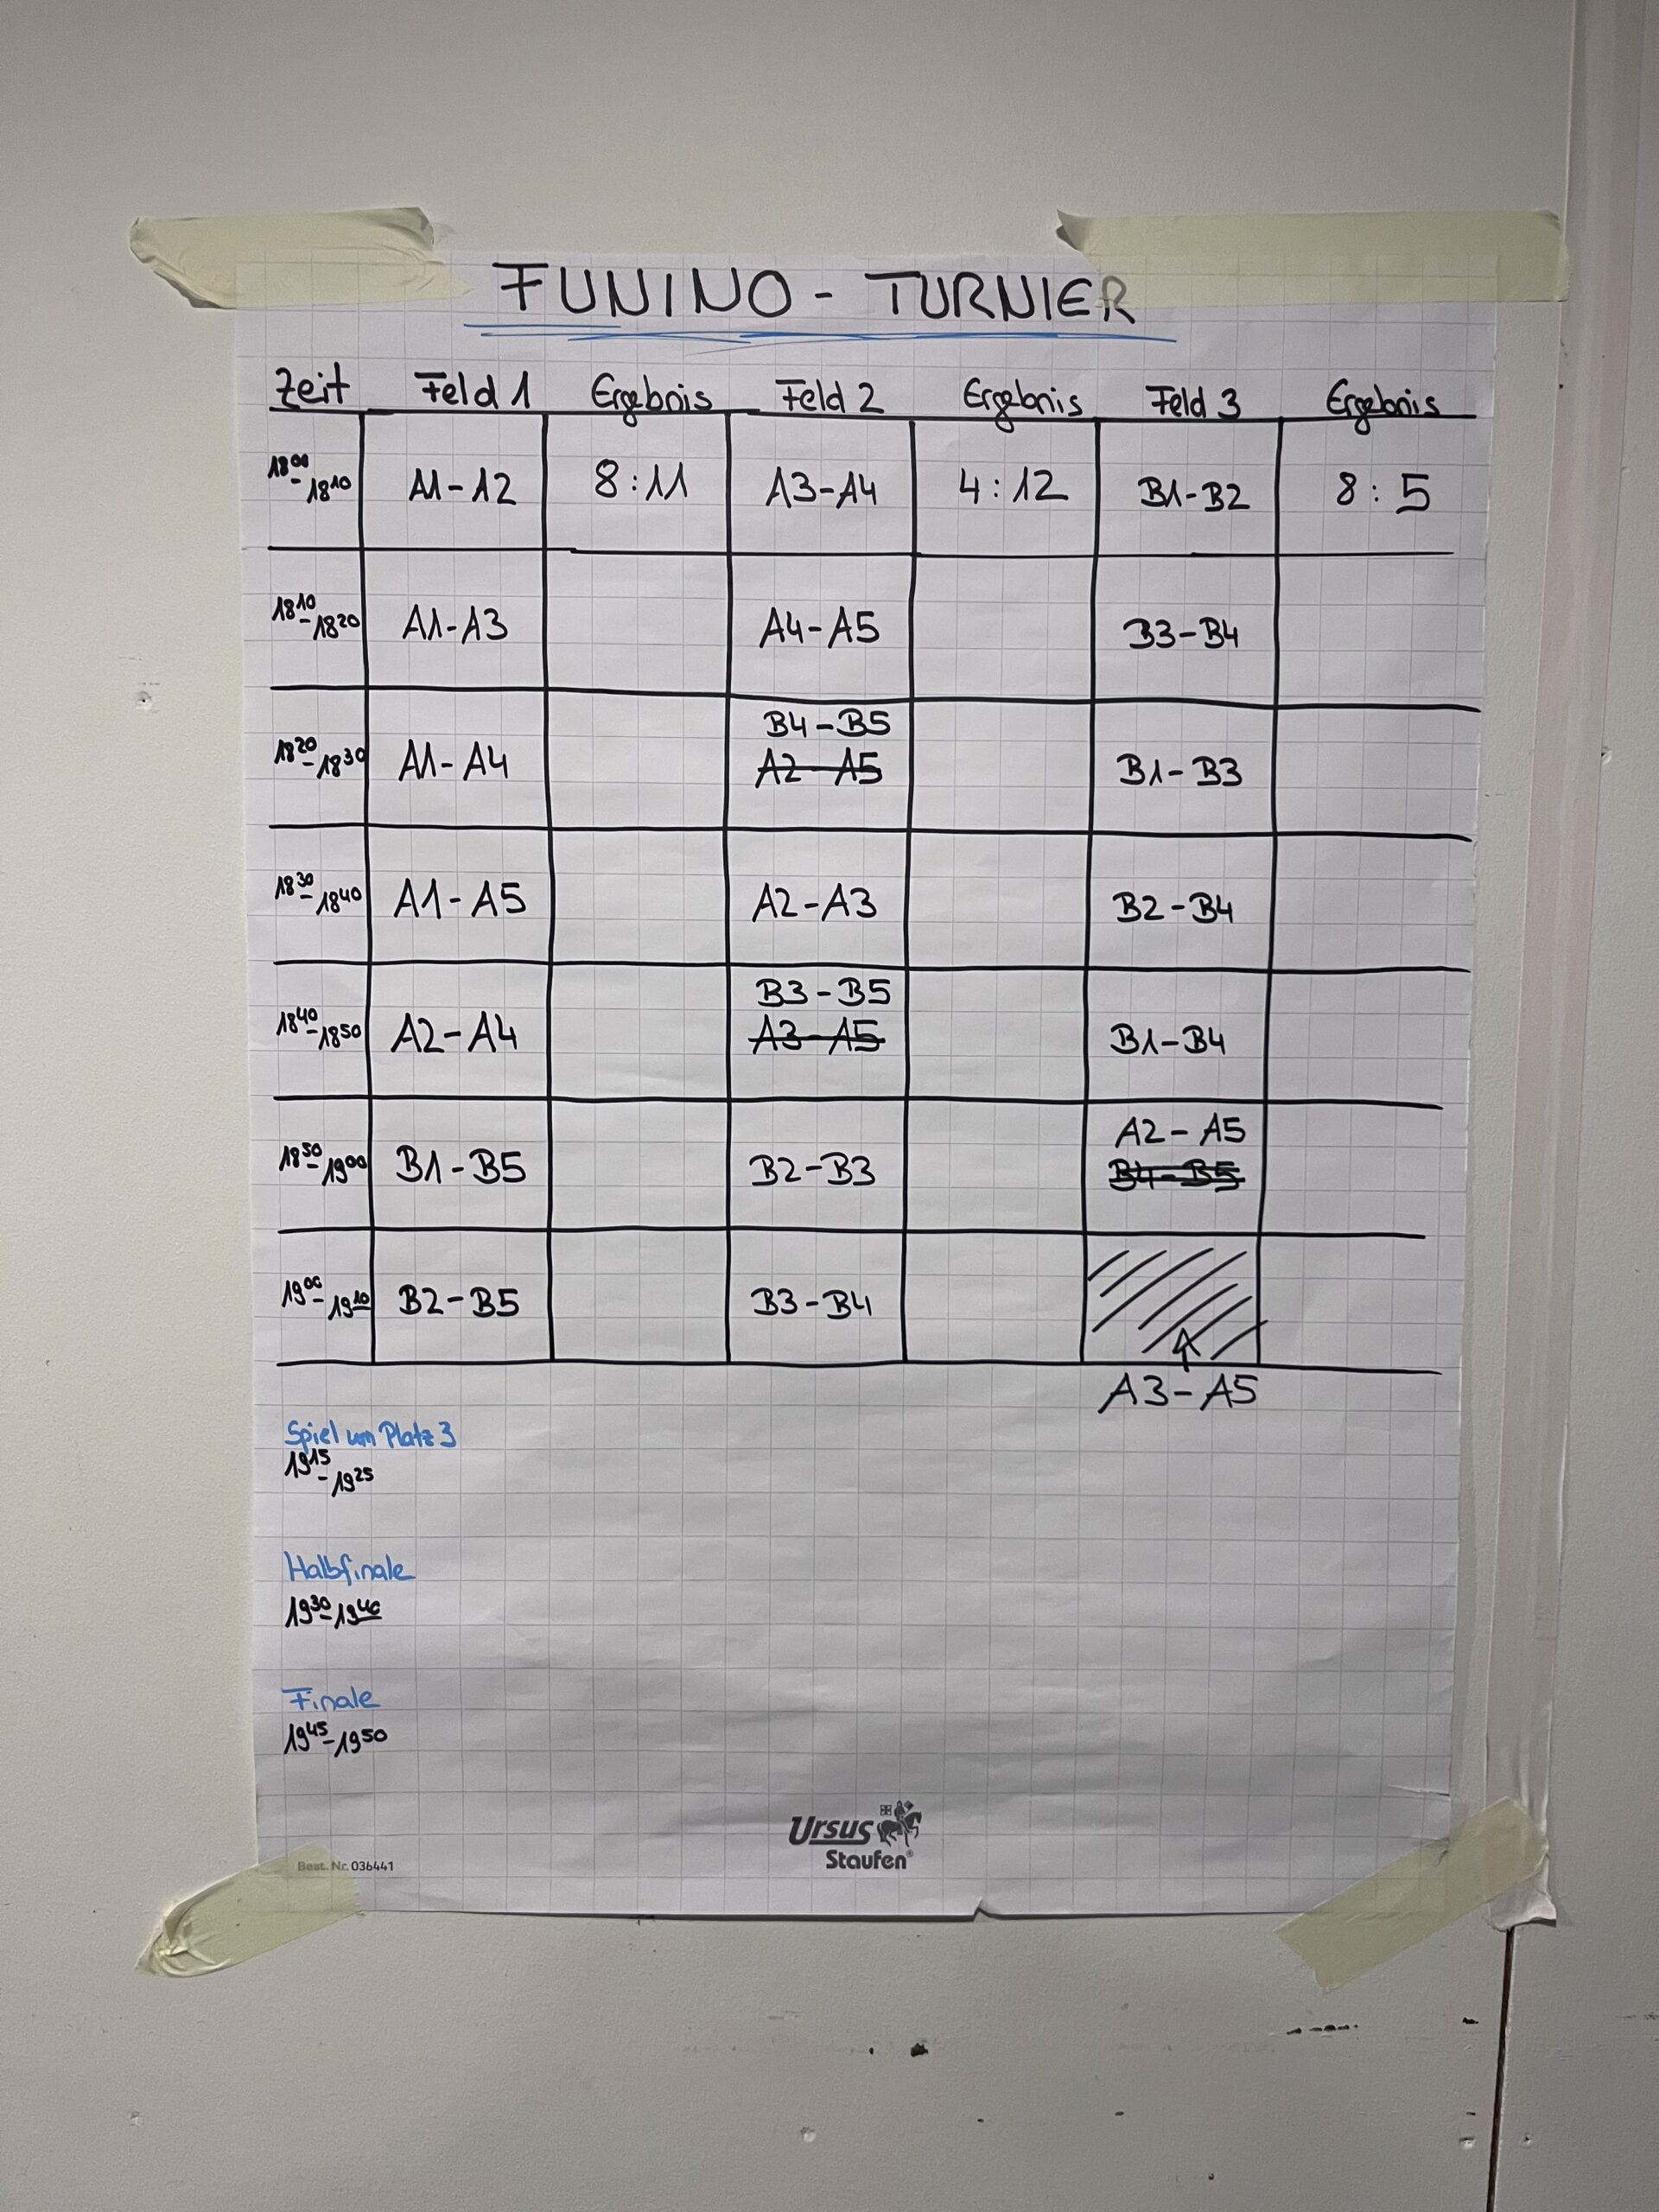 FUNINO - TURNIER
Zeit Feld 1 Ergebnis Feld 2 Ergebnis Feld 3 Ergebnis
1800-1810 A1-A2 8:11 A3-A4 4:12 B1-B2 8:5
1810-1820 A1-A3 A4-A5 B3-B4
B4-B5
1820-1830 A1-A4 A2-A5 B1-B3
1830-1840 A1-A5 A2-A3 B2-B4
B3-B5
1840-1850 A2-A4 A3-A5 B1-B4
A2-A5
1850-1900 B1-B5 B2-B3 B4-B5
1900-1910 B2-B5 B3-B4
A3-A5
Spiel um Platz 3
1915-1925
Halbfinale
1930-1940
Finale
1945-1950
Ursus
Staufen®
Best. Nr. 036441